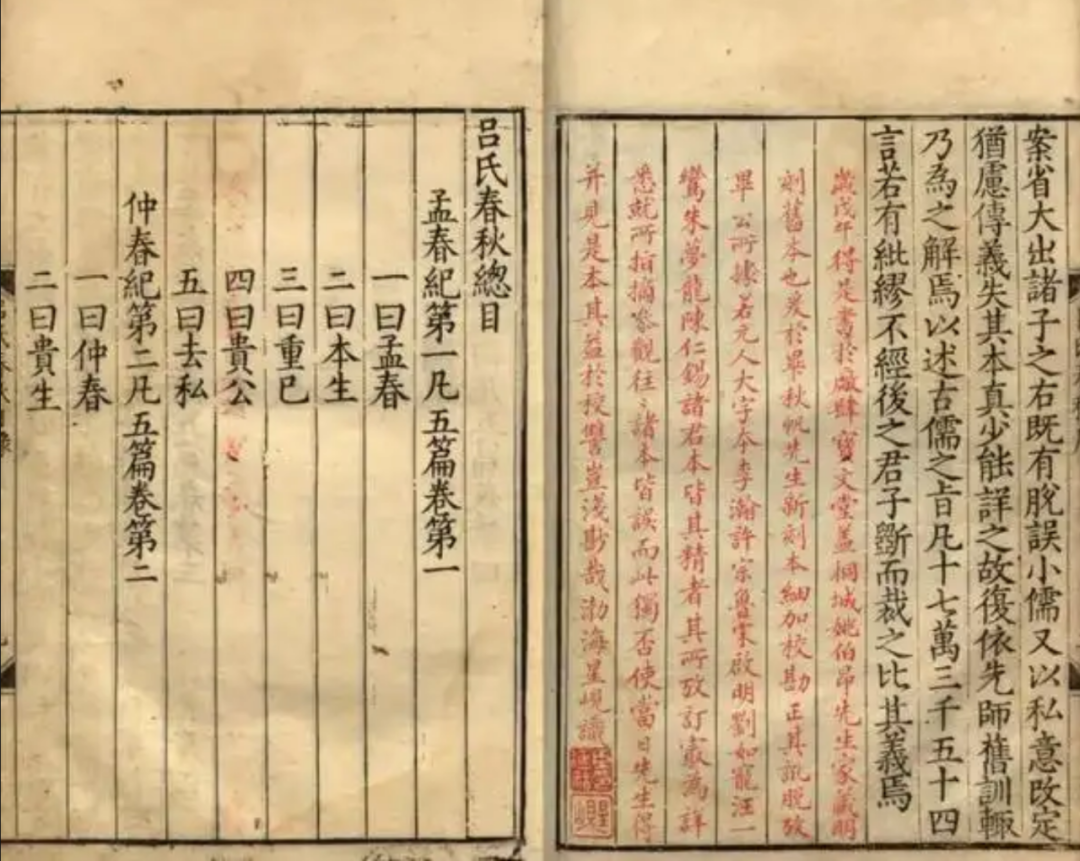 案省大出諸子之右既有脫誤小儒又以私意改定
猶慮傳義失其本真少能詳之故復依先師舊訓輒
乃為之解焉以述古儒之旨凡十七萬三千五十四
言若有紕繆不經後之君子斷而裁之比其義焉
歲戊午得是書於廠肆寶文堂蓋桐城姚伯昂先生家藏明
刻舊本也爰於畢秋帆先生新刻本細加校勘正其訛脫攷
畢公所據若元人大字本李瀚許宗魯宋啟明劉如寵汪一
鸞朱夢龍陳仁錫諸君本皆其精者其所攷訂最為詳
悉就所指摘叅觀往〻諸本皆誤而此獨否使當日先生得
并見是本其益於校讐豈淺尠哉渤海星峴識
呂氏春秋總目
孟春紀第一凡五篇卷第一
一曰孟春
二曰本生
三曰重已
四曰貴公
五曰去私
仲春紀第二凡五篇卷第二
一曰仲春
二曰貴生